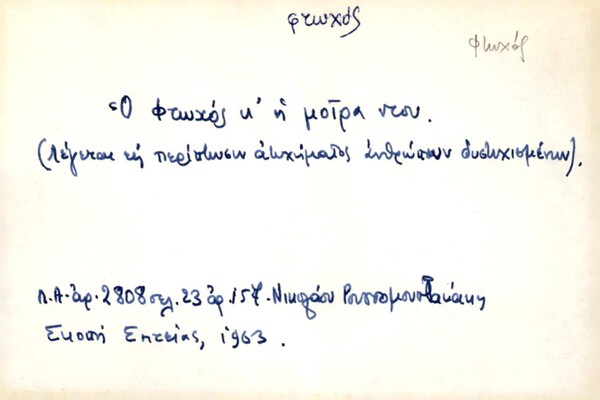 φτωχός
φτωχός
Ὁ φτωχός κ' ἡ μοῖρα ντου.
(Λέγεται ἐπί περιπτώσεων ἀτυχήματος ἀνθρώπων δυστυχισμένων).
Λ.Α. ἀρ. 2808 σελ. 23 ἀρ. 157. Νικολάου
Σκοπή Σητείας, 1963.